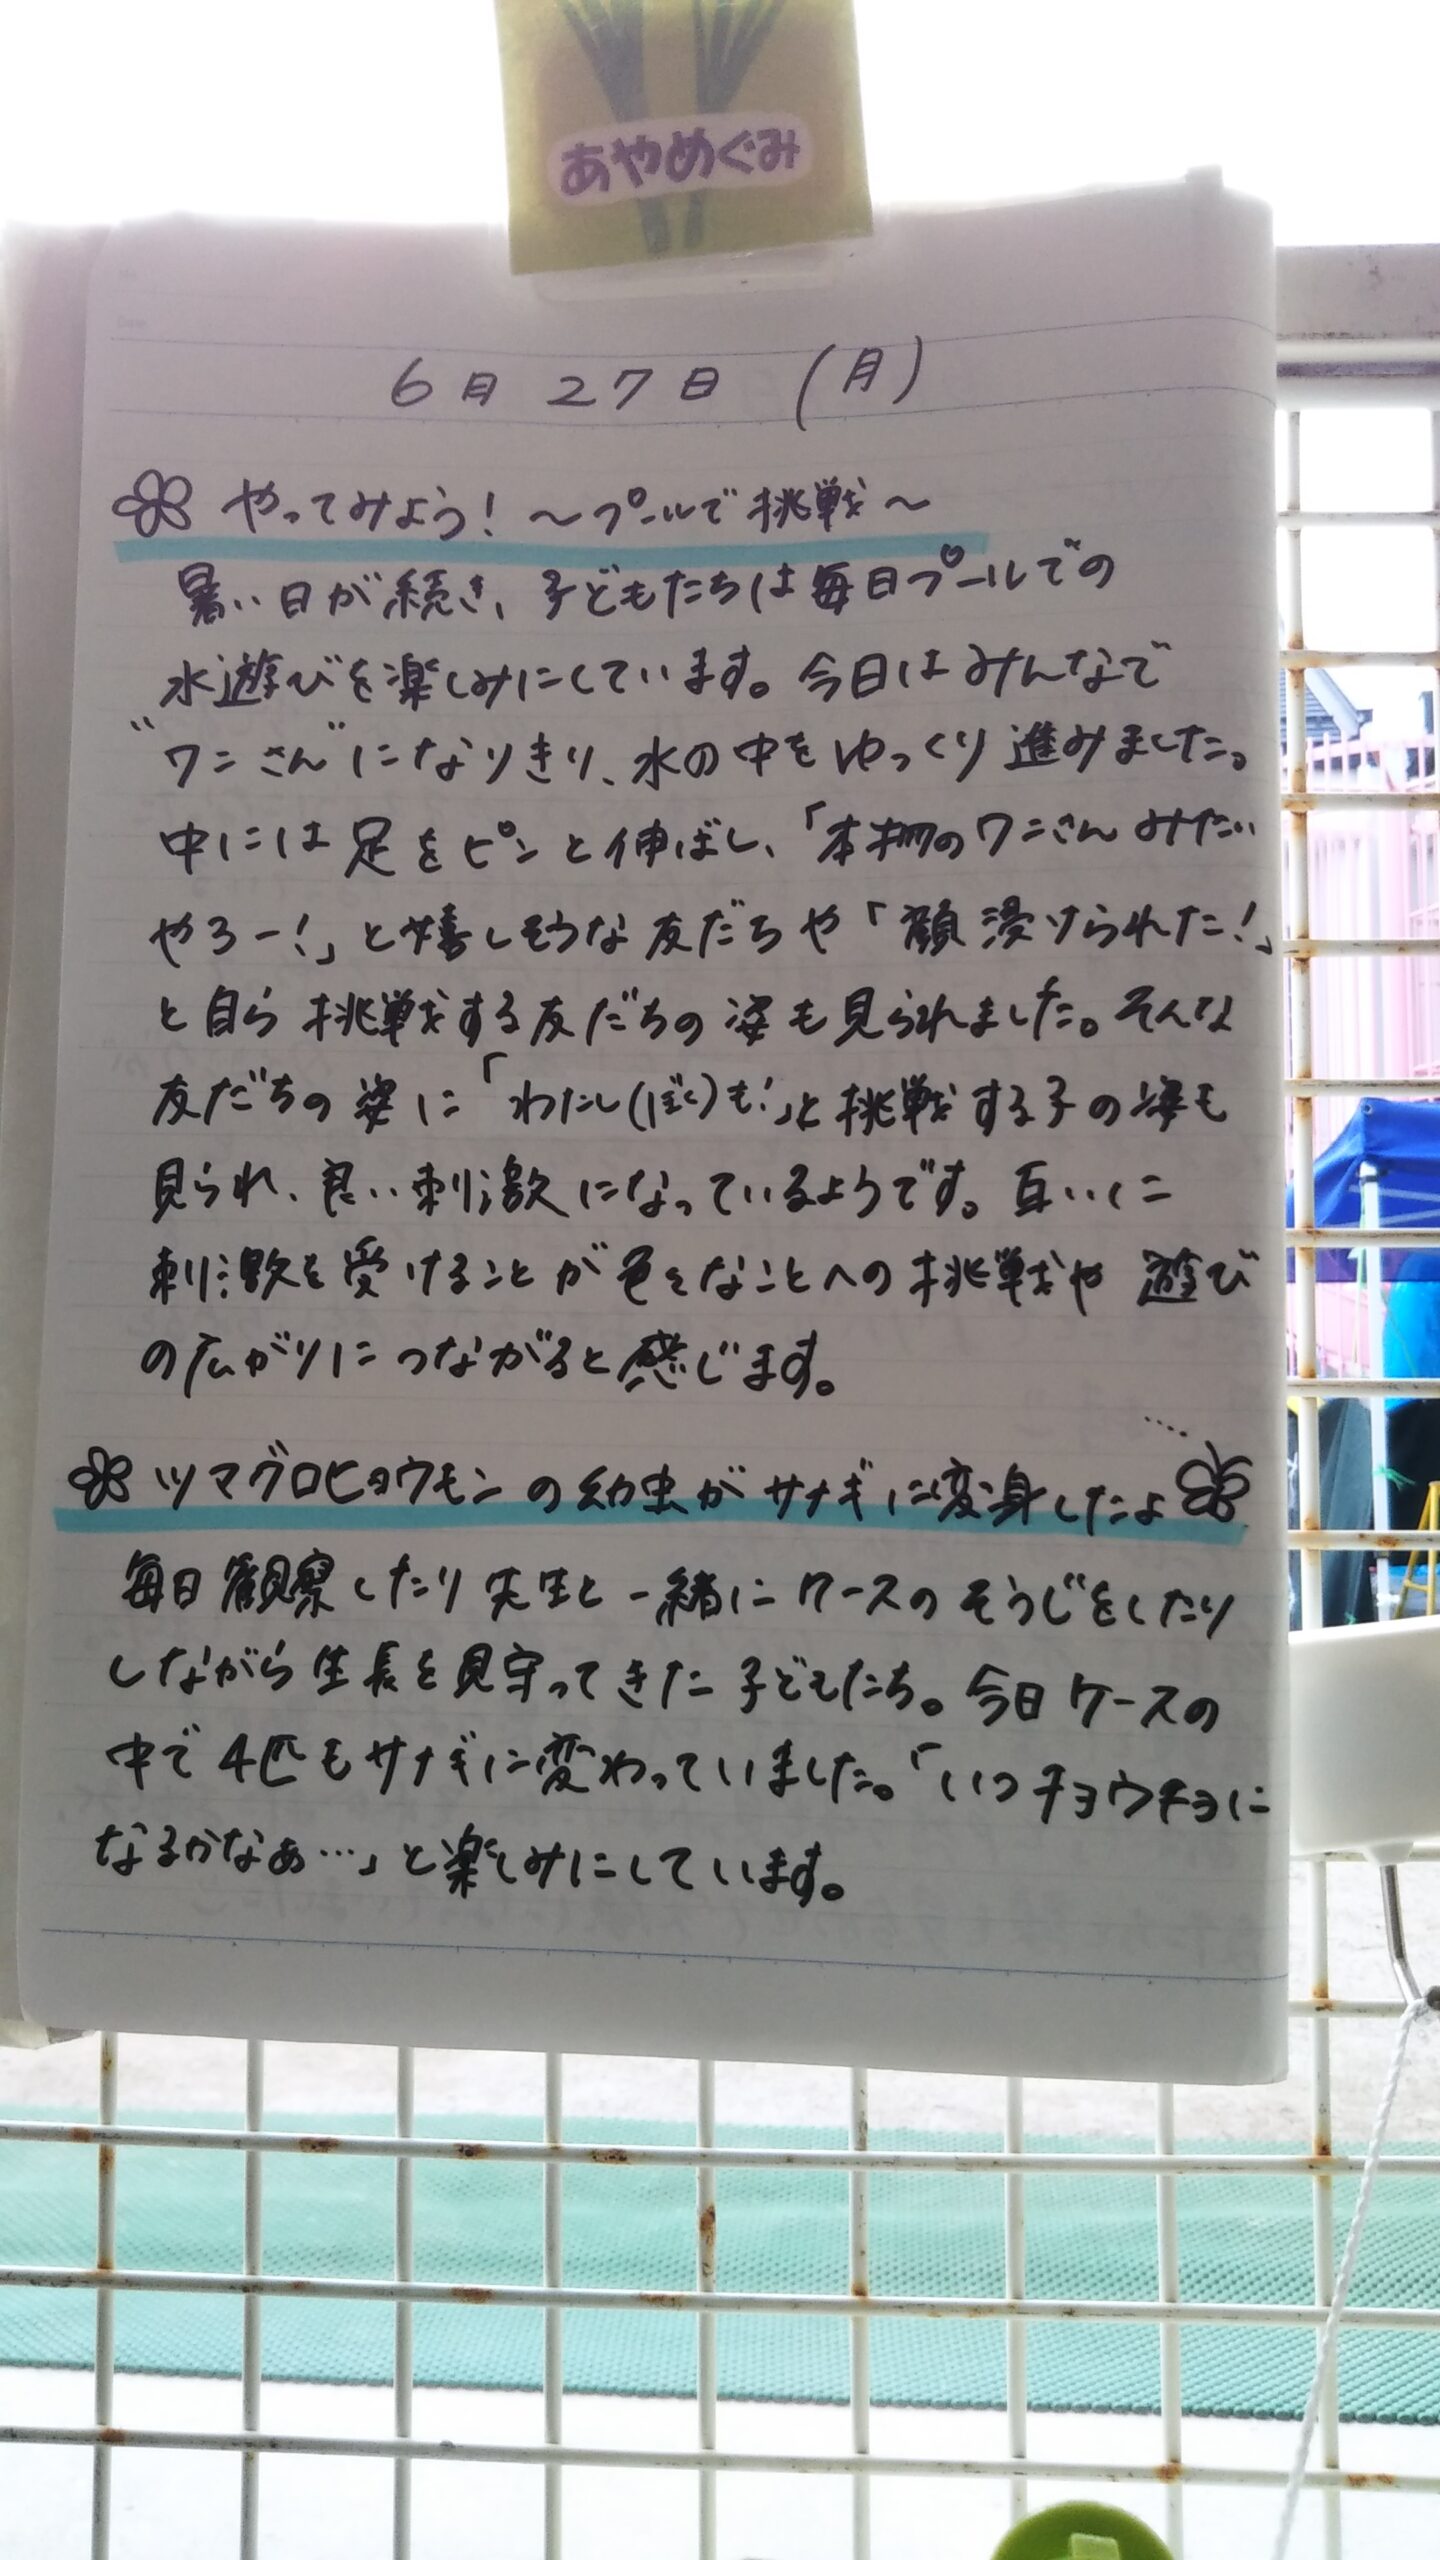 あやめぐみ
6月27日(月)
やってみよう!～プールで挑戦～
暑い日が続き、子どもたちは毎日プールでの
水遊びを楽しみにしています。今日はみんなで
"ワニさん"になりきり、水の中をゆっくり進みました。
中には足をピンと伸ばし、「本物のワニさんみたい
やろー!」と嬉しそうな友だちや「顔浸けられた!」
と自ら挑戦する友だちの姿も見られました。そんな
友だちの姿に「わたし(ぼく)も!」と挑戦する子の姿も
見られ、良い刺激になっているようです。互いに
刺激を受けることが色々なことへの挑戦や遊び
の広がりにつながると感じます。
ツマグロヒョウモンの幼虫がサナギに変身したよ
毎日観察したり先生と一緒にケースのそうじをしたり
しながら生長を見守ってきた子どもたち。今日ケースの
中で4匹もサナギに変わっていました。「いつチョウチョに
なるかなぁ…」と楽しみにしています。